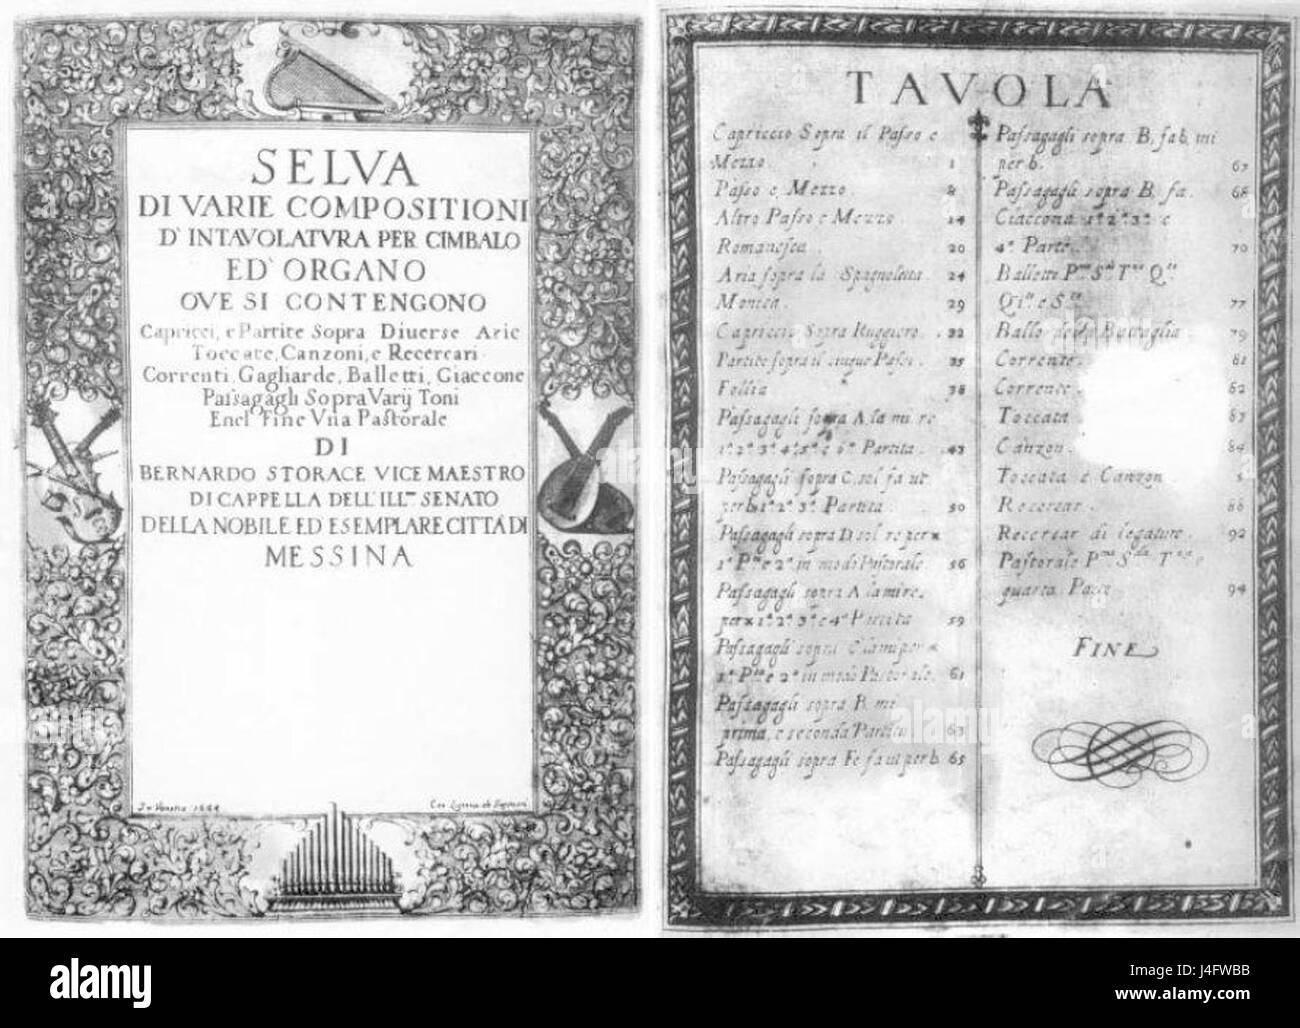 SELVA
DI VARIE COMPOSITIONI
D' INTAVOLATVRA PER CIMBALO
ED' ORGANO
OVE SI CONTENGONO
Capricci, e Partite Sopra Diuerse Arie
Toccate, Canzoni, e Recercari
Correnti, Gagliarde, Balletti, Giaccone
Passagagli Sopra Varij Toni
Enel Fine Vna Pastorale
DI
BERNARDO STORACE VICE MAESTRO
DI CAPPELLA DELL' ILL.mo SENATO
DELLA NOBILE ED ESEMPLARE CITTÀ DI
MESSINA
In Venetia 1664
TAVOLA
Capriccio Sopra il Passo e
Mezzo. 1
Passo e Mezzo. 8
Altro Passo e Mezzo. 14
Romanesca. 20
Aria sopra la Spagnoletta. 24
Monica. 29
Capriccio Sopra Ruggiero. 32
Partite sopra il cinque Passi. 35
Follia 38
Passagagli sopra A. la mi re
1.ª 2.ª 3.ª 4.ª 5.ª e 6.ª Partita. 43
Passagagli sopra C. sol fa ut
per b. 1.ª 2.ª 3.ª Partita. 50
Passagagli sopra D. sol re per
1.ª P.te e 2.ª in modo Pastorale. 56
Passagagli sopra A la mi re.
per 1.ª 2.ª 3.ª e 4.ª Partita 59
Passagagli sopra
1.ª P.te e 2.ª in modo Pastorale. 61
Passagagli sopra B. mi
prima, e seconda Partita 63
Passagagli sopra Fe fa ut per b. 65
Passagagli sopra B. fa b. mi
per b. 67
Passagagli sopra B. fa. 68
Ciaccona 1.ª 2.ª 3.ª e
4.ª Parte. 70
Balletti P.mo S.do T.zo Q.to
Q.to e S.to 77
Ballo della Battaglia. 79
Corrente. 81
Corrente. 82
Toccata 83
Canzon. 84
Toccata e Canzon
Recercar. 88
Recercar di legature. 92
Pastorale P.ma S.da T.za e
quarta Parte 94
FINE
alamy
Image ID: J4FWBB
www.alamy.com